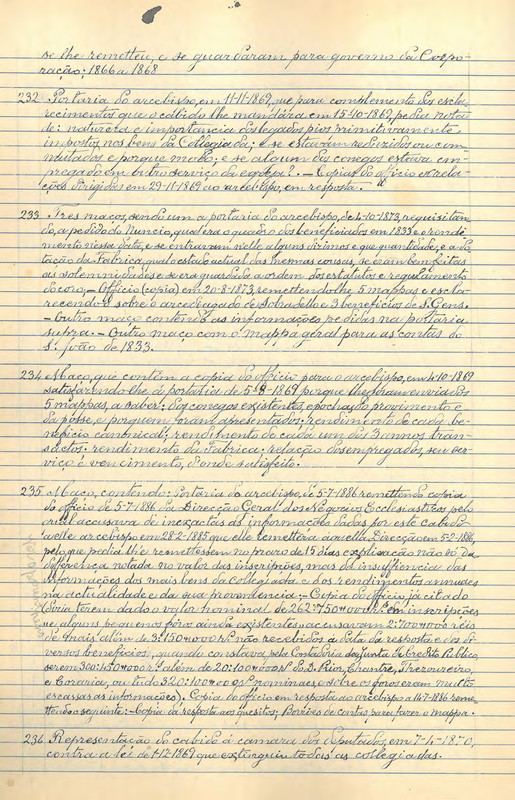 se lhe remetteu, e se guardaram para governo da Corpo-
ração; 1866 a 1868
232 Portaria do arcebispo, em 11-11-1869, que para complemento dos escla-
recimentos que o cabido lhe mandára em 15-10-1869, pedia nota
de: natureza e importancia dos legados pios primitivamente
impostos nos bens da Collegiada; e se estavam reduzidos ou com-
mutados e porque modo; e se algum dos conegos estava em-
pregado em outro serviço da egreja? — Copias do officio e rela-
ções dirigidas em 29-11-1869 ao arcebispo, em resposta.
233 Tres maços, sendo um a portaria do arcebispo, de 4-10-1873, requisitan-
do, a pedido do Nuncio, qual era o quadro dos beneficiados em 1833 e rendi-
mento nessa data, e se entravam nelle alguns dizimos e que quantidade; e a do-
tação da Fabrica, qual estado actual das mesmas cousas, se eram bem feitas
as solemnidades e se era guardada a ordem dos estatutos e regulamento
do coro; — Officio (copia) em 20-8-1873 remettendo-lhe 5 mappas e escla-
recendo-o sobre o arcediagado de Sobradello e 3 beneficios de S. Gens.
— Outro maço contendo as informações pedidas na portaria
supra. — Outro maço com o mappa geral para as contas do
S. João de 1833.
234 Maço, que contém a copia do officio para o arcebispo, em 4-10-1869
satisfazendo-lhe á portaria de 5-8-1869 porque lhe foram enviados
5 mappas, a saber: dos conegos existentes, epocha do provimento e
da posse, e por quem foram apresentados; rendimento de cada be-
neficio canonical; rendimento de cada um dos 3 annos tran-
sactos; rendimento da Fabrica; relação dos empregados, seu ser-
viço e vencimento, d'onde satisfeito.
235 Maço, contendo: Portaria do arcebispo, de 5-7-1886 remettendo copia
do officio de 5-7-1886 da Direcção Geral dos Negocios Ecclesiasticos pelo
qual accusava de inexactas as informações dadas por este Cabido
áelle arcebispo em 28-2-1885 que elle remettera áquella Direcção em 5-2-1886,
pelo que pedia lhe remettessem no prazo de 15 dias explicação não só da
differença notada no valor das inscripções, mas da insufficiencia das
informações dos mais bens da Collegiada e dos rendimentos annuaes
na actualidade e da sua proveniencia; — Copia do officio já citado
(dizia terem dado o valor nominal de 262:750$000 rs. em inscripções
e alguns pequenos fóros ainda existentes e accusavam 2:700$000 réis
de mais além de 3:150$000 rs. não recebidos á data da resposta e dos di-
versos beneficios, quando constava pela Contadoria da Junta do Credito Publico,
serem 300:150$000 rs. além de 20:100$000 rs. do D. Prior, Chantre, Thezoureiro,
e Conaria, ou tudo 320:  nominaes, e sobre os foros eram muito
escassas as informações). Copia do officio em resposta ao arcebispo a 14-7-1886 reme-
ttendo o seguinte: — Copia da resposta aos quesitos; Borrões de contas para fazer o mappa.
236 Representação do cabido á camara dos deputados, em 7-4-1870,
contra a lei de 1-12-1869 que extinguiu todas as collegiadas.